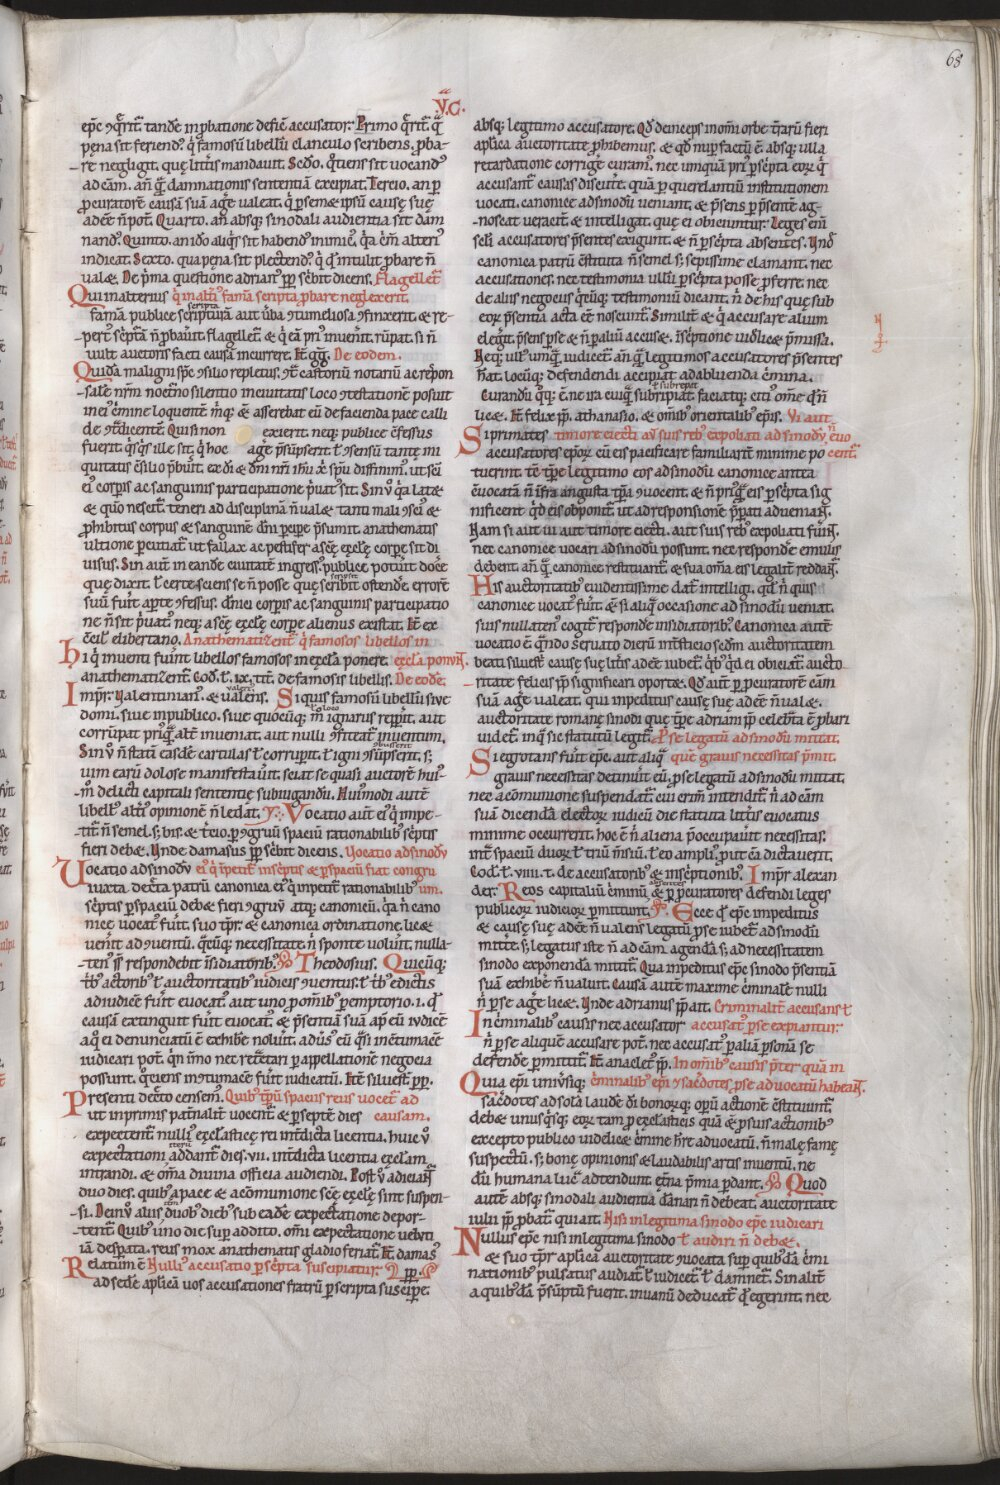 68
V. C.
ep̄c ꝯq̄rit᷑. tandē in ꝓbatione defic̄ accusator. Primo q̄rit᷑. q̄
pęna sit feriend᷒. q̇ famosū libellū clanculo scribens, ꝓba-
re negligit. quę litt̄is mandauit. Scd̄o. q̇tiens sit uocand᷒
ad cām. an̄ q̄ dāmnationis sententiā excipiat. Tercio. an ꝑ
ꝓcuratorē causā suā ag̃e ualeat. q̇ ꝑ semetipsū causę suę
adēe n̄ pot̄. Quarto. an absq; sinodali audientia sit dam
nand᷒. Quinto. an ido aliq̇s sit habend᷒ inimic᷒. q̇a c̄m̄ alteri᷒
indicat. Sexto. qua pęna sit plectend᷒. q̇ qd̄ intulit ꝓbare n̄
ualet. De p̄ma questione adrian᷒ ꝑꝑ sc̄bit dicens. Flagellet᷑
Qui in alterius q̇ in alt̄i᷒ famā scripta ꝓbare neglexerit.
famā publice scripturā aut ūba ꝯtumeliosa ꝯfinxerit. & re-
pert᷒ sc̄pta n̄ ꝓbauit. flagellet᷑. & q̇ ea p̄us inuenit. rūpat. si n̄
uult auctoris facti causā incurrere. It̄ gg̃. De eodem.
Quidā maligni sp̄c ꝯsilio repletus. ꝯt̄ castoriū notariū ac respon
sale nr̄m noct̄no silentio in ciuitatis loco ꝯtestationē posuit
in ei᷒ c̄mine loquentē. m̄q; & asserebat eū de facienda pace calli
de ꝯt̄dicentē. Quisi non exierit. neq; publice c̄fessus
fuerit. q̇sq̇s ille sit. q̇ hoc ag̃e p̄sūpserit ł ꝯsensū tantę ini
quitatis c̄silio p̄buit. ex dī & dn̄i nr̄i ihū xp̄i sp̄u diffinim᷒. ut sc̄i
ei᷒ corpis ac sanguinis participatione p̄uat᷒ sit. Sin ū q̇a latet
& quo nescit᷑. teneri ad disciplinā n̄ ualet tanti mali ꝯsci᷒ &
ꝓhibitus corpus & sanguinē dn̄i pcipe p̄sumit. anathematis
ultione pcutiat᷑. ut fallax ac pestifer a sc̄ę ęcłę corpe sit di
uisus. Sin aut̄ in eandē ciuitatē ingress᷒. publice potuit docēre
quę dixit. ł certe sciens se n̄ posse quę scribit ostendē. errorē
suū fuit apte ꝯfessus. dn̄ici corpis ac sanguinis participatio
ne n̄ sit p̄uat᷒. neq; a sc̄ę ęcłę corpe alienus existat. It̄ ex
c̄cil̄ elibertano. Anathematizent᷑ q̇ famosos libellos in
Hi q̇ inuenti fuint libellos famosos in ęcl̄a ponere. ęcl̄a ponūt.
anathematizent᷑. Cod̄. ł. ix. tit̄. de famosis libellis. De eodē.
Impr̄. ualentinian᷒. & ualens. Siquis famosū libellū siue
domi. siue in publico. siue quocūq; in loco ignarus reppit. aut
corrūpat p̄usq̄ alt̄ inueniat. aut nulli ꝯfiteat᷑ inuentum.
Sin ū n̄ statī easdē cartulas ł corrupit. ł igni ꝯsūpserit. s;
uim earū dolose manifestauit. sciat se quasi auctorē hui᷒-
m̄ delicti capitali sententię subiugandū. Huiusmodi autē
libell᷒ alt̄i᷒ opinionē n̄ ledat. Vocatio aut̄ ei᷒ q̇ impe-
tit᷑. n̄ semel. s; bis. & t̄cio. ꝑ ꝯgruū spaciū rationabilib᷒ sc̄ptis
fieri debet. Vnde damasus ꝑꝑ sc̄bit dicens. Vocatio ad sinodū
Uocatio ad sinodū ei᷒ q̇ īpetit᷑ ī sc̄ptis & ꝑ spaciū fiat congru
iuxta dec̄ta patrū canonica ei᷒ q̇ inpetit᷑ rationabilib᷒ um.
sc̄ptis ꝑ spaciū debet fieri ꝯgruū atq; canonicū. q̇a n̄ cano
nice uocat᷒ fuit. suo tp̄r & canonica ordinatione. licet
uenit ad ꝯuentū. q̇cūq; necessitate. n̄ sponte uoluit. nulla-
ten᷒ s̄s̄ respondebit īsidiatorib᷒. Theodosius. Quicūq;
t̄b᷒ actorib᷒ ł auctoritatib᷒ iudicis ꝯuentus. ł t̄b᷒ edictis
ad iudicē fuit euocat᷒. aut uno ꝓ om̄ib᷒ ꝑemptorio. i. qd̄
causā extinguit fuit euocat᷒. & p̄sentiā suā ap̄ eū iudicē
a q̇ ei denunciatū ē exhibē noluit. adūs᷒ eū q̇si in ꝯtumacē
iudicari pot̄. q̇n īmo nec ret̄ctari ꝑ appellationē negocia
possunt. q̇ciens in ꝯtumacē fuit iudicatū. Itē siluest᷑ ꝑꝑ.
Presenti dec̄to censem᷒. Quib᷒ tp̄rū spaciis reus uocet᷑ ad
ut inprimis patn̄alit̄ uocent᷑. & ꝑ septē dies causam.
expectent᷑. nulli᷒ ęcłasticę rei int̄dicta licentia. huic ū
expectationi addant᷑ dies. vii. int̄dicta licentia ęcłam
intrandi. & om̄ia diuina officia audiendi. Post ū adiciant᷑
duo dies. quib᷒ a pace & acōmunione sc̄ę ęcłę sint suspen-
si. Dein ū aliis duob᷒ dieb᷒ sub eadē expectatione depor-
tent᷑. Quib᷒ uno die sup addito. om̄i expectatione ueluti
iā despata. reus mox anathematis gladio feriat᷑. It̄ damas᷒
Relatum ē Nulli᷒ accusatio ꝑ sc̄pta suscipiatur. ꝑꝑ.
ad sedē aplicā uos accusationes fratrū ꝑ scripta suscipe.
absq; legitimo accusatore. Qd̄ deinceps in om̄i orbe t̄rarū fieri
aplica auctoritate ꝓhibemus. & qd̄ nup factū ē. absq; ulla
retardatione corrigē curam᷒. nec umquā p̄us ꝑ sc̄pta eorꝝ q̇
accusant᷑ causas discutit̄. quā ꝑ querelantiū institutionem
uocati. canonice ad sinodū ueniant. & p̄sens ꝑ p̄sentē ag-
noscat ueracit̄ & intelligat. quę ei obiciuntur. Leges enī
seculi accusatores p̄sentes exigunt. & n̄ ꝑ sc̄pta absentes. Vnd̄
canonica patrū c̄stituta n̄ semel s; sepissime clamant. nec
accusationes. nec testimonia ullū ꝑ sc̄pta posse ꝓferre. nec
de aliis negociis q̇cūq; testimoniū dicant. n̄ de his quę sub
eorꝝ p̄sentia acta ēe noscunt᷑. Similit̄ & q̇ accusare aliū
elegit. p̄sens ꝑ se & n̄ ꝑ aliū accuset. īsc̄ptione uidlicet p̄missa.
Neq; ull᷒ umq̄ iudicet᷑. an̄ q̄ legitimos accusatores p̄sentes
habeat. locūq; defendendi accipiat ad abluenda c̄mina.
Curandū q̇q; ē. ne ira cuiq̄ subripiat faciatq; citi᷒ om̄e qd̄ n̄
licet. It̄ felix ꝑꝑ. athanasio. & om̄ib᷒ orientalib᷒ ep̄is. Vi aut
Siprimates timore eiecti aū suis reb᷒ expoliati ad sinodū n̄ uo
accusatores ep̄orꝝ cū eis pacificare familiarit̄ minime po cent᷑.
tuerint. tc̄ tp̄re legitimo eos ad sinodū canonice antea
c̄uocatā n̄ īfra angusta tp̄ra ꝯuocent. & n̄ p̄usq̄ eis ꝑ sc̄pta sig
nificent qd̄ eis obponit᷑. ut ad responsionē p̄parati adueniant.
Nam si aut ui aut timore eiecti. aut suis reb᷒ expoliati fuint.
nec canonice uocari ad sinodū possunt. nec respondē emulis
debent. an̄ q̄ canonice restituant᷑. & sua om̄ia eis legalit̄ reddant᷑.
His auctoritatib᷒ euidentissime dat᷑ intelligi. qd̄ n̄ quis
canonice uocat᷒ fuit. & si aliq̇ occasione ad sinodū ueniat.
suis nullaten᷒ cogit᷑ respondē insidiatorib᷒. Canonica autē
uocatio ē. q̄ndo seruato dierū int̄sticio sedm̄ auctoritatem
beati siluest᷑ causę suę lit̄is adēe iubet᷑. q̇b᷒ qd̄ ei obiciat᷑. aucto-
ritate felicis ꝑꝑ significari oportet. Qd̄ aut̄ ꝑ ꝓcuratorē cām
suā ag̃e ualeat. qui inpeditus causę suę adēe n̄ ualet.
auctoritate romanę sinodi quę tp̄re adriani ꝑꝑ celebrata ē ꝓbari
uidet᷑. in q̇ sic statutū legit᷑. Per se legatū ad sinodū mittat.
Si egrotans fuit ep̄c. aut aliq̇ quē grauis necessitas p̄mit.
grauis necessitas detinuit eū. ꝓ se legatū ad sinodū mittat.
nec acōmunione suspendat᷑. cui crim̄ intendit᷑. n̄ ad cām
suā dicendā electorꝝ iudiciū die statuta litt̄is euocatus
minime occurrerit. hoc ē n̄ aliena p̄occupauit necessitas.
int̄ spaciū duorꝝ ł triū m̄siū. ł eo ampli᷒. put cā dictauerit.
Cod̄. ł. viiii. t. de accusatorib᷒ & insc̄ptionib᷒. Impr̄ alexan
der. Reos capitaliū c̄minū absentes & ꝑ ꝓcuratores defendi leges
publicorꝝ iudiciorꝝ ꝑmittunt. Ecce qd̄ ep̄c impeditus
& causę suę adēe n̄ ualens legatū ꝓ se iubet᷑ ad sinodū
mittē. s; legatus iste n̄ ad cām agendā s; ad necessitatem
sinodo exponendā mittit᷑. Qua impeditus ep̄c sinodo p̄sentiā
suā exhibē n̄ ualuit. Causā autē maxime c̄minalē nulli
n̄ ꝑ se ag̃e licet. Vnde adrianus ꝑꝑ ait. Criminalit̄ accusans ł
In c̄minalib᷒ causis nec accusator accusat᷒ ꝑ se expiantur.
n̄ ꝑ se aliquē accusare pot̄. nec accusat᷒ ꝑ aliā ꝑsonā se
defendē ꝑmittit᷑. It̄ anaclet᷒ ꝑꝑ. In om̄ib᷒ causis p̄ter quā in
Quia ep̄i uniūsiq; c̄minalib᷒ ep̄i ꝯ sac̄dotes ꝑ se aduocatū habeant.
sac̄dotes ad solā laudē di bonorꝝq; opū actionē c̄stituunt᷑.
debet unusq̇sq; eorꝝ tam ꝓ ęcłasticis quā & ꝓ suis actionib᷒
excepto publico uidelicet c̄mine hr̄e aduocatū. n̄ malę famę
suspectū. s; bonę opinionis & laudabilis artis inuentū. ne
dū humana lucra adtendunt. et̄na p̄mia ꝑdant. Quod
autē absq; sinodali audientia dānari n̄ debeat. auctoritate
iulii ꝑꝑ ꝓbat᷑. qui ait. Nisi in legitima sinodo ep̄c iudicari
Nullus ep̄c nisi in legitima sinodo ł audiri n̄ debet.
& suo tp̄r aplica auctoritate ꝯuocata sup quib᷒dā c̄mi
nationib᷒ pulsatus audiat᷑. ł iudicet᷑. ł damnet᷑. Sin alit̄
a quib᷒dā p̄sūptū fuerit. in uanū deducat᷑ qd̄ egerint. nec